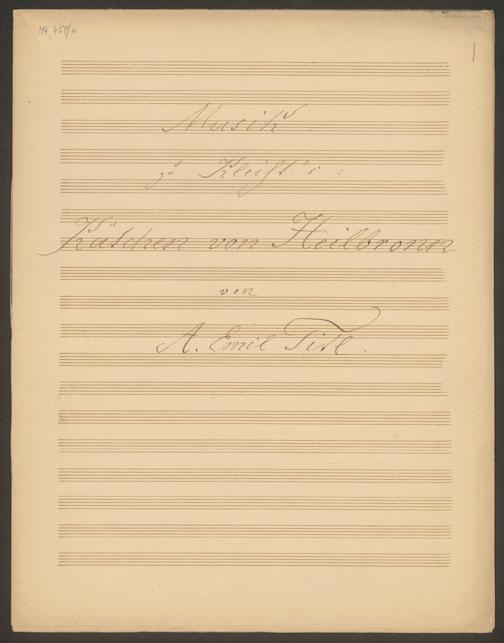 MA 459/c
Musik.
zu Kleist's:
Kätchen von Heilbronn
von
A. Emil Titl.